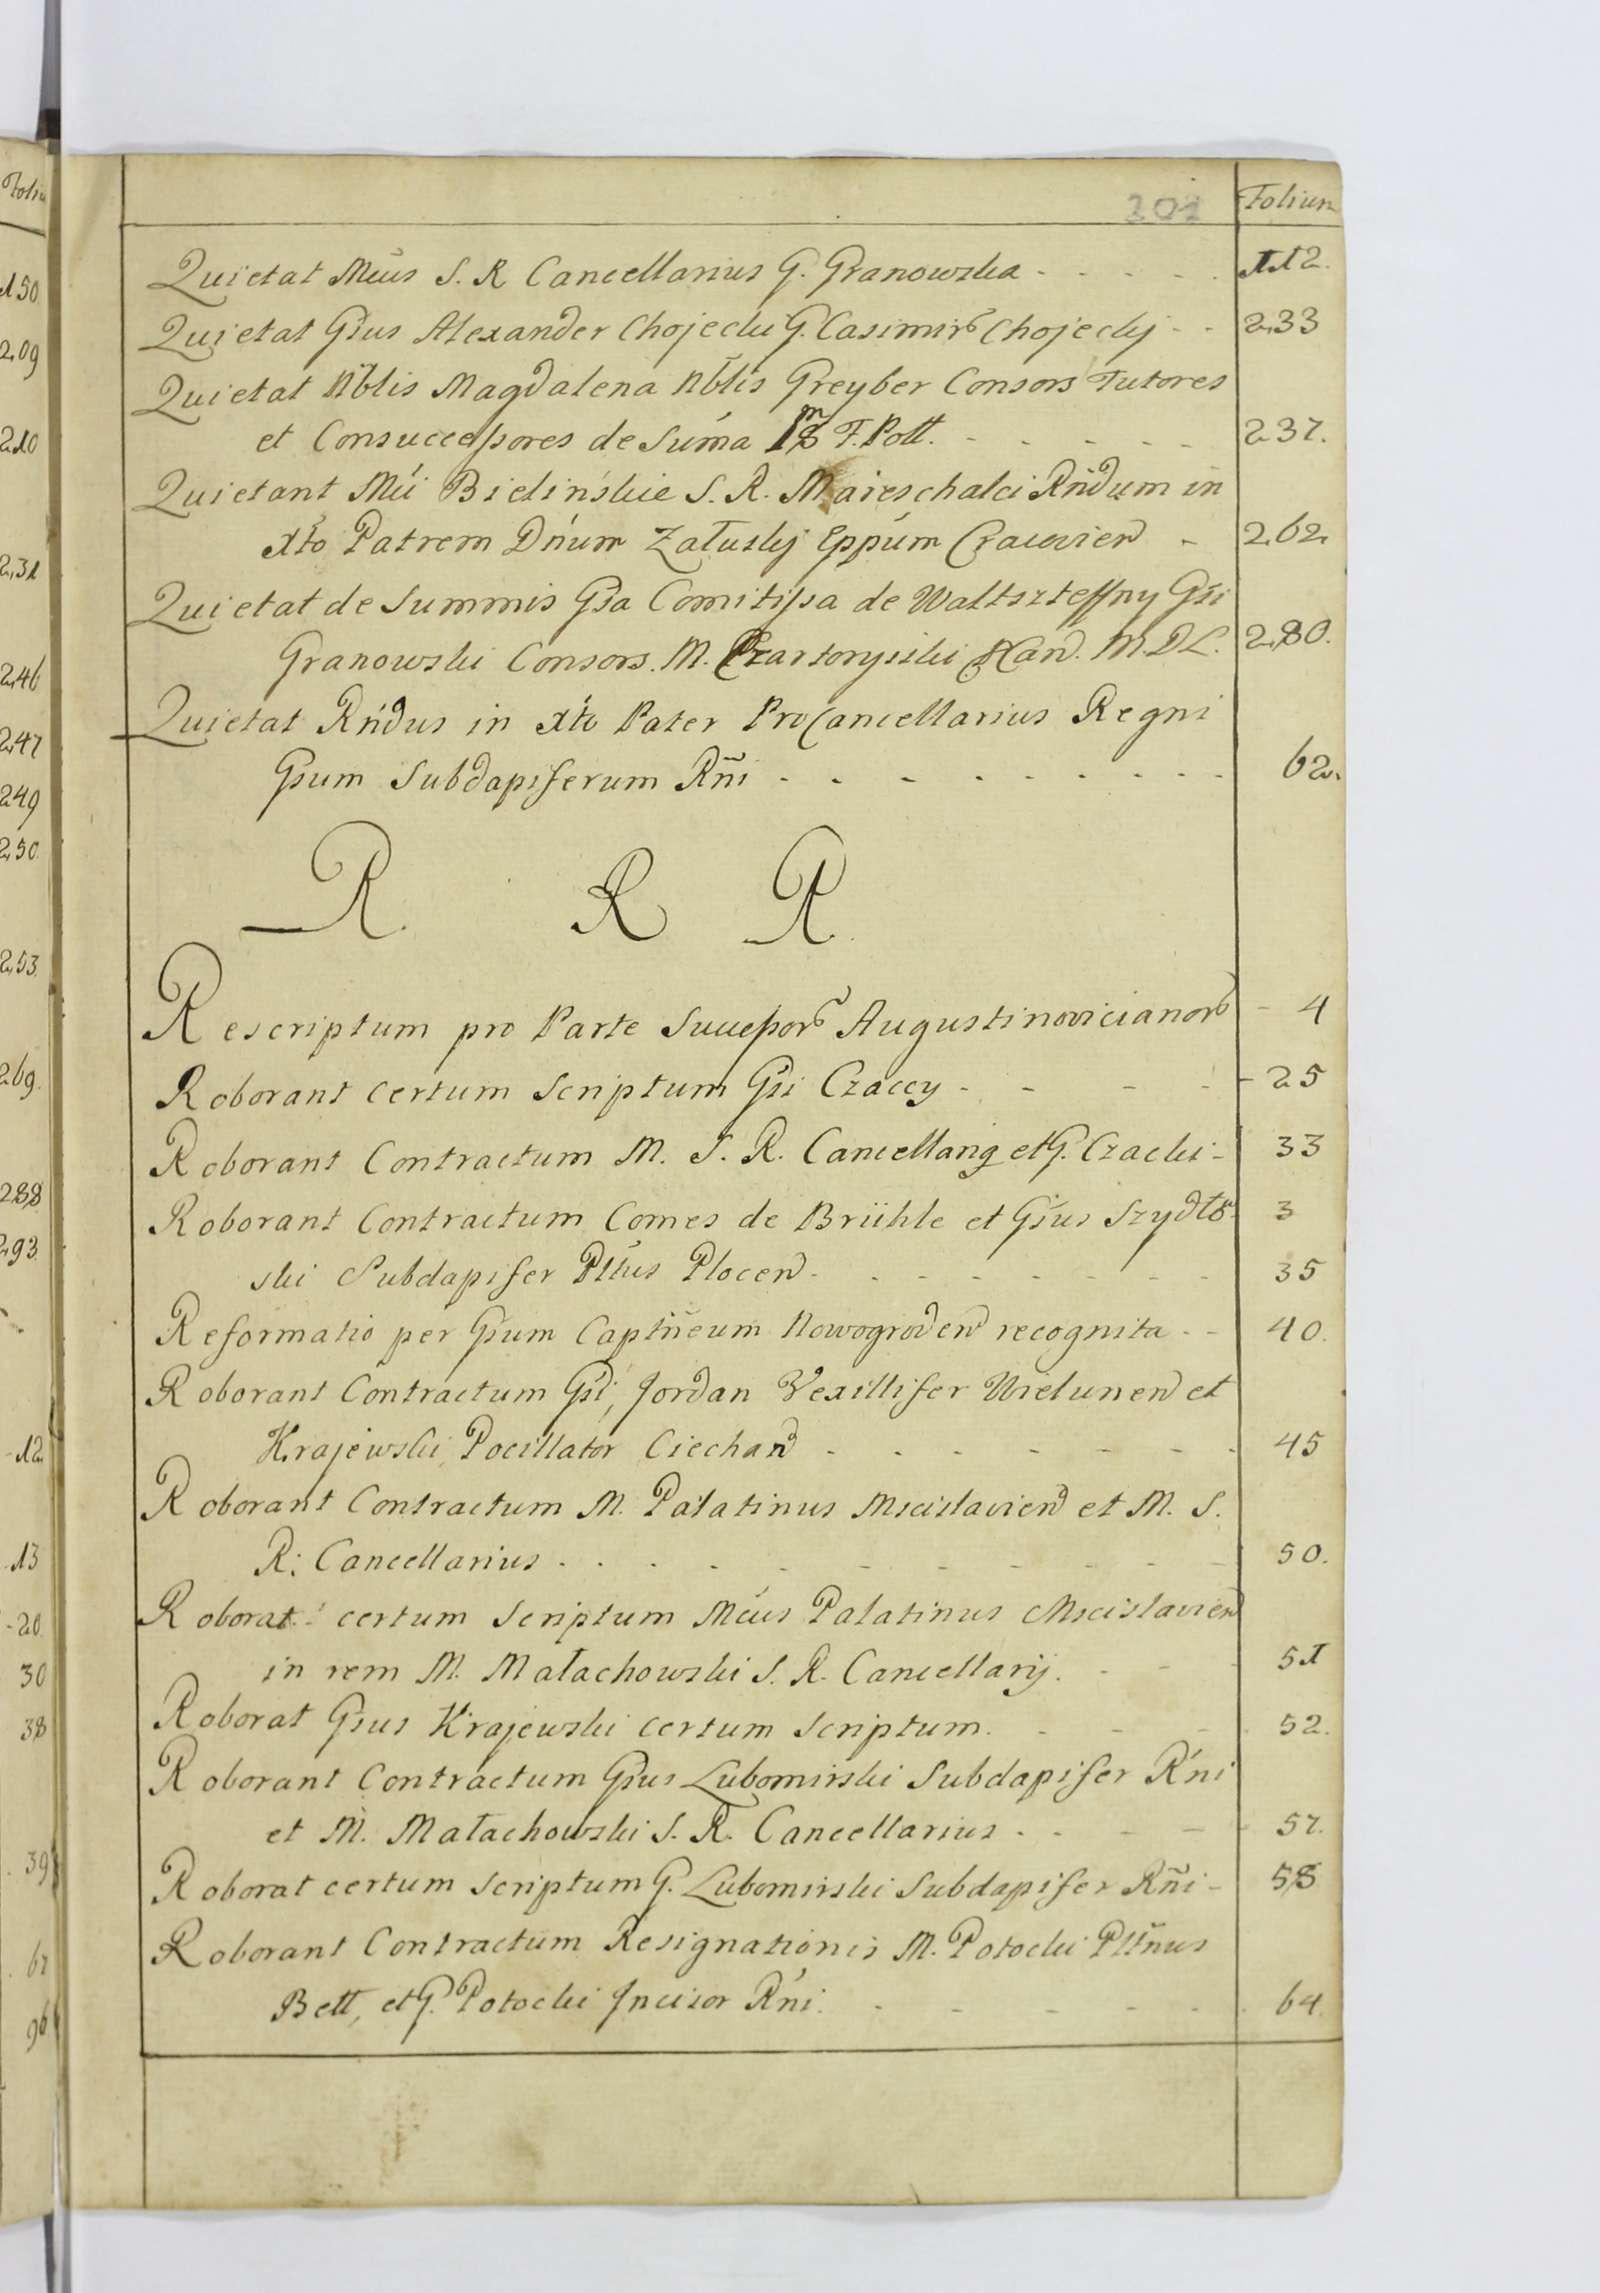 201 Folium
Quietat Mĉus S. R Cancellarius G. Granowska - - - - 112.
Quietat Gsus Alexander Chojecki G. Casimir Chojecky - - 233
Quietat Nblis Magdalena Nblis Greyber Consors Tutores
et Consuccessores de Sum̃a F. Poll. - - - - - 237.
Quietant Mĉi Bielińskie S. R. Mareschalci Rñdum in
Xto Patrem Dńum Załusky Eppum Cracovien - 262.
Quietat de Summis Gsa Comitissa de Waltszteffny Gsi
Granowski Consors. M. Czartoryiski Can. M.D.L. 280.
Quietat Rńdus in Xto Pater ProCancellarius Regni
Gsum Subdapiferum Rñi - - - - - - - - 62.
R R R
Rescriptum pro Parte Successor Augustinovicianor - 4
Roborant certum Scriptum Gsi Czaccy - - - - 25
Roborant Contractum M. S. R. Cancellarig et G. Czacki - 33
Roborant Contractum Comes de Brühle et Gsus Szydło- 3
ski Subdapifer Pltus Plocen - - - - - - 35
Reformatio per Gsum Captñeum Nowogroden recognita - - 40.
Roborant Contractum Gsi, Jordan Vexillifer Wielunen et
Krajewski Pocillator Ciechan - - - - - - - 45
Roborant Contractum M. Palatinus Mscislavien et M. S.
R: Cancellarius - - - - - - - - - 50.
Roborat certum Scriptum Mĉus Palatinus Mscislavien
in rem M. Małachowski S. R. Cancellarij. - - - 51
Roborat Gsus Krajewski certum Scriptum. - - - 52.
Roborant Contractum Gsus Lubomirski Subdapifer Rńi
et M. Małachowski S. R. Cancellarius - - - - 57.
Roborat certum scriptum G. Lubomirski Subdapifer Rñi - 58
Roborant Contractum Resignationis M. Potocki Pltñus
Bełł, et G. Potocki Incisor Rńi. - - - - - 64.